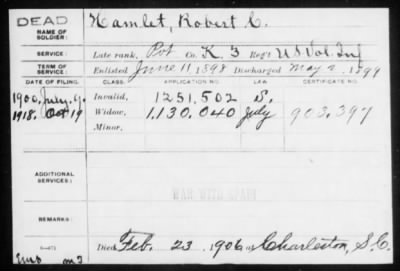 DEAD
NAME OF SOLDIER: Hamlet, Robert C.
SERVICE: Late rank, Pvt Co. K 3 Reg't U S Vol. Inf
TERM OF SERVICE: Enlisted June 11 1898 Discharged May 2, 1899
DATE OF FILING. CLASS. APPLICATION NO. LAW. CERTIFICATE NO.
1900, July 9. Invalid, 1251,502 S.
1918. Oct 19 Widow, 1.130.040 July 903.397
Minor,
ADDITIONAL SERVICES:
WAR WITH SPAIN
REMARKS:
Died Feb. 23, 1906, at Charleston, S.C.